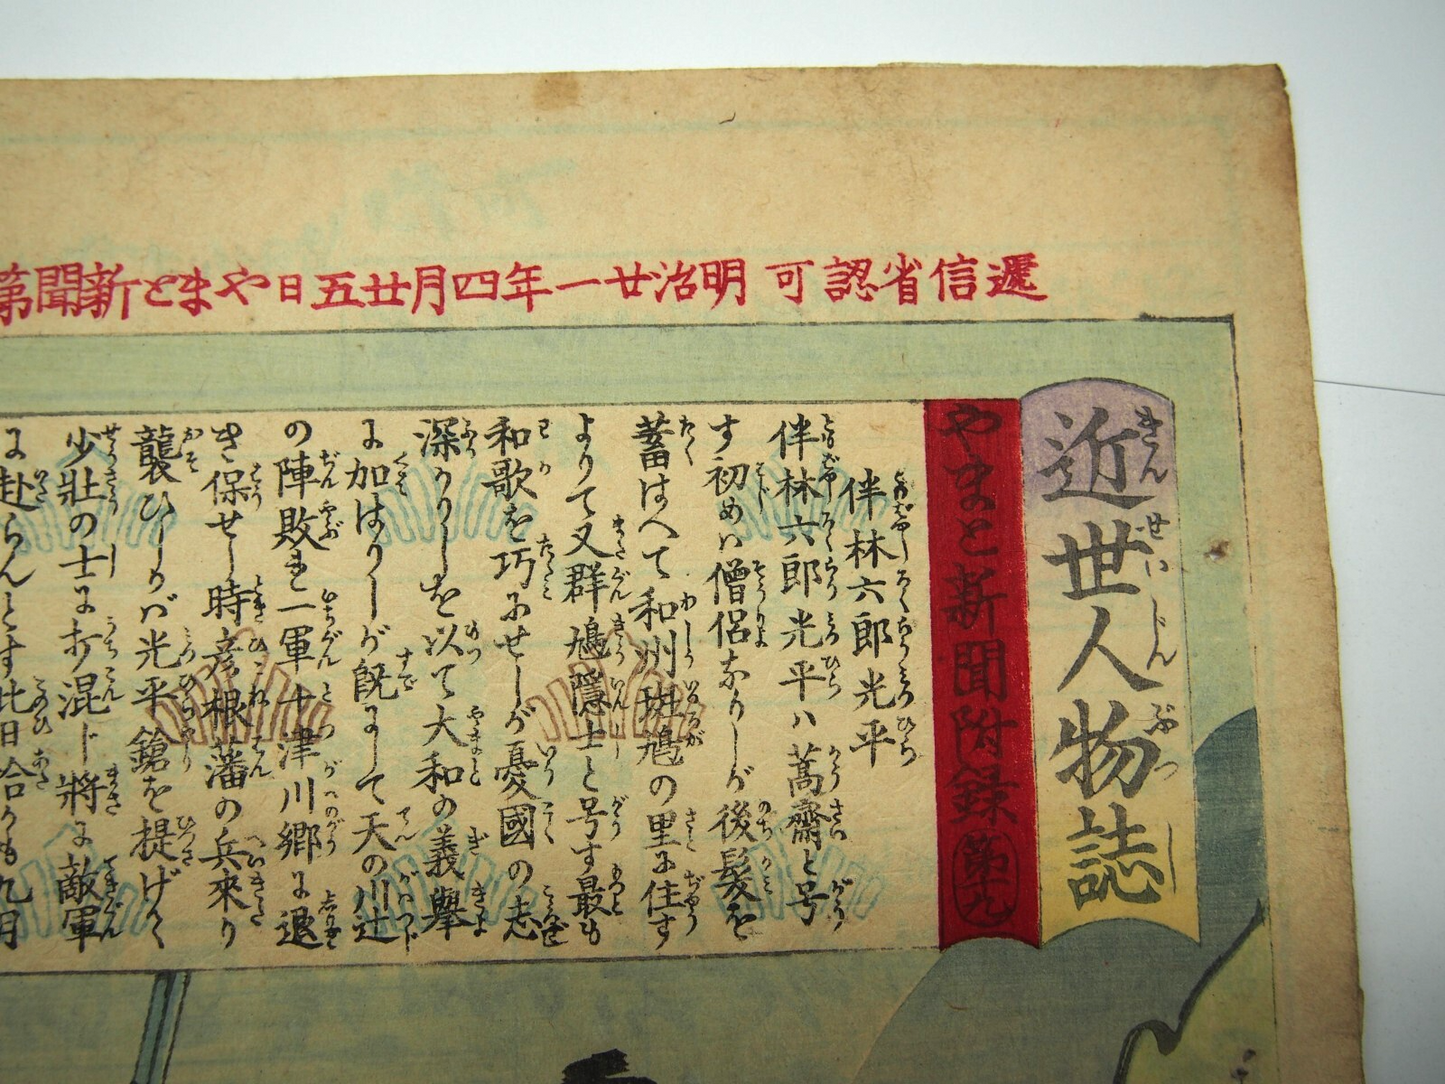 遞信省認可 明治廿一年四月廿五日やまと新聞第
近世人物誌
きんせいじんぶつし
やまと新聞附録 第九
伴林六郎光平
ともばやしろくらうみつひら
伴林六郎光平ハ蒿齋と号
す初めハ僧侶なりしが後髪を
蓄はへて和州斑鳩の里に住す
よりて又群鳩隱士と号す最も
和歌を巧にせしが憂國の志
深かりしを以て大和の義擧
に加はりしが既にして天の川辻
の陣敗れ一軍十津川郷に退
き保せし時彦根藩の兵來り
襲ひしかバ光平鎗を提げて
少壯の士に打混じ將に敵軍
に赴らんとす此日恰かも九月